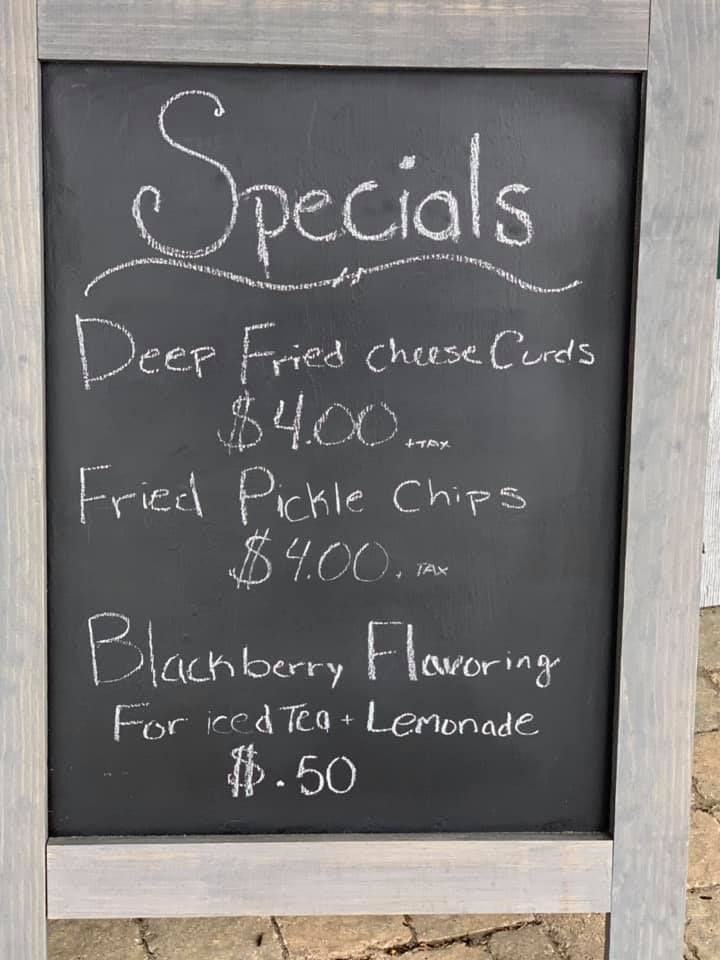 Specials
Deep Fried Cheese Curds
$4.00 + TAX
Fried Pickle Chips
$4.00 + TAX
Blackberry Flavoring
For iced Tea + Lemonade
$.50